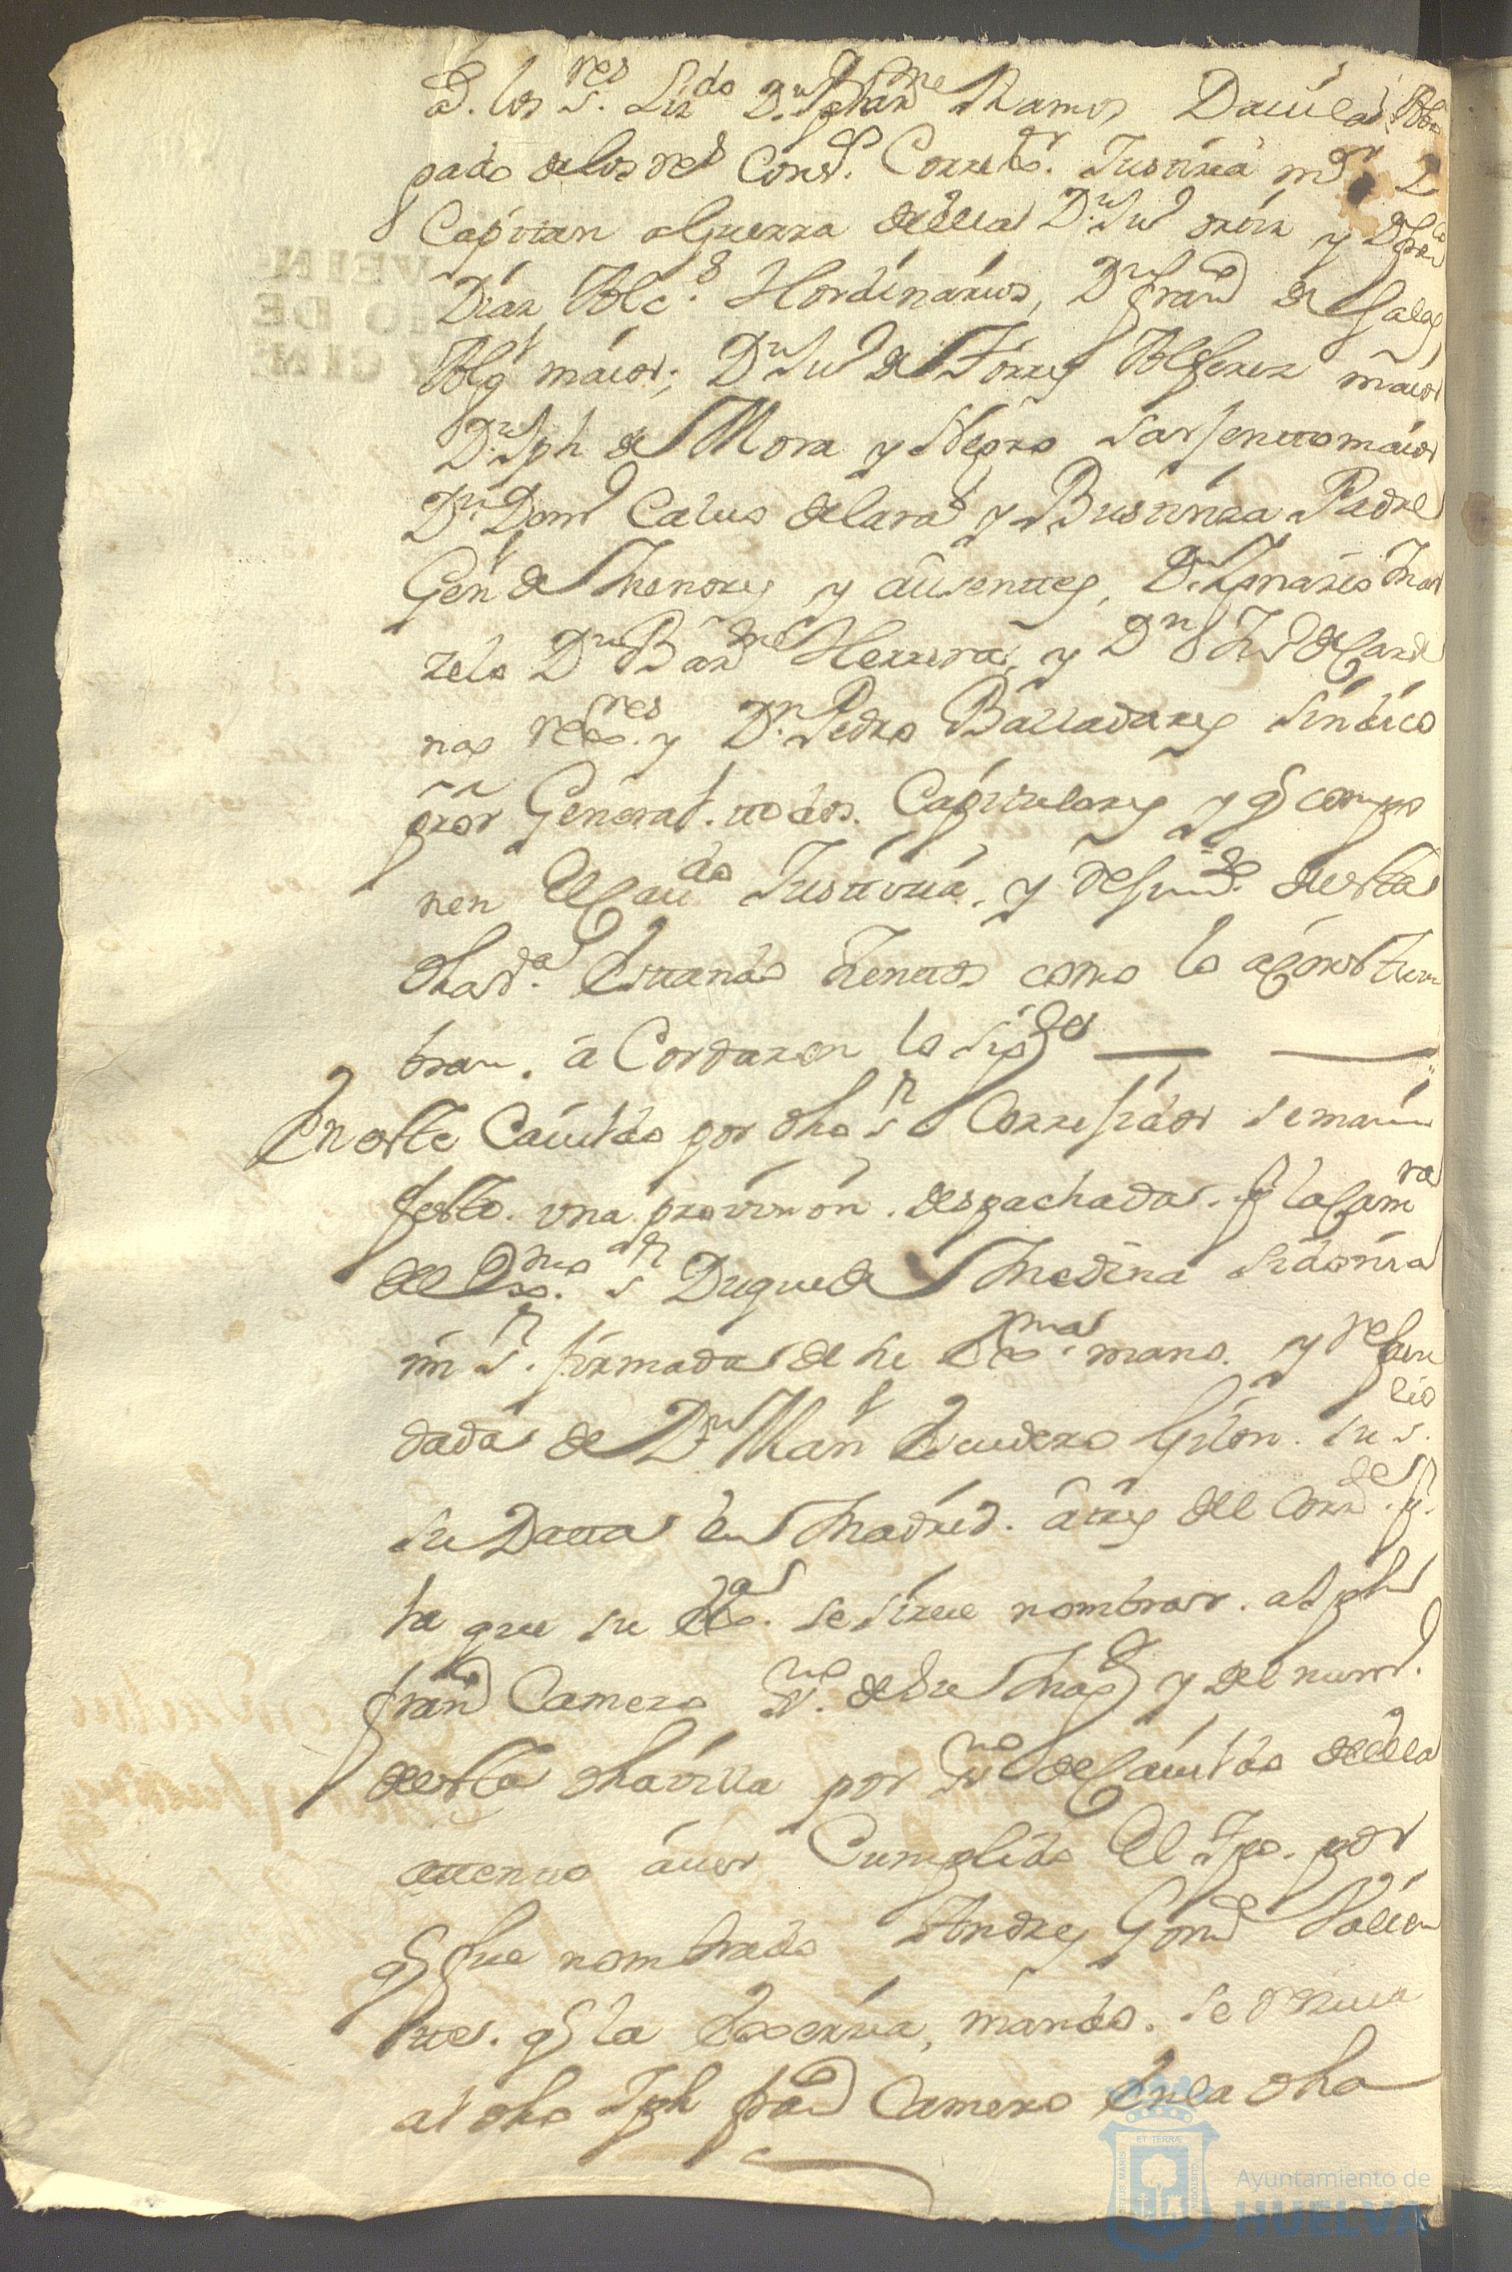 a. los s.res Liz.do D.n Ramos Davila Abo
gado de los rs Cons.s Corre.or Justicia m.or y
Capitan aGuerra de ella D.n Ju.o ortiz y D.n
Diaz Alc.s Hordinarios, D.n fran.co de
Alg.l maior; D.n Ju.o de Torres Alferez maior
D.n Jph de Mora y Negro Sarjentto maior
D.n Dom.o Calvo de lara y Bustinza Padre
Gen.l de Menores y ausenttes, D.n Ignasio Mar
zelo D.n Bar.me Herrera, y D.n de Carde
nas re.res y D.n Pedro Balladares Sindico
pror General. ttodos. Capitulares y q.e compo
nen el Cau.do Justticia, y rejim.to de esta
dha v.a Esttando Jenttos como lo acostum
bran. a Cordaron lo sig.te
En este Cauildo por dho s.r Correjidor se mani
festo. una provision. despachada. p.r la Cam.ra
del Ex.mo s.r Duque de Medina Sidonia
mi s.r firmada de su Ex.ma mano. y refren
dada de D.n Man.l Escudero Gilon. su s.rio
su Datta en Madrid. a ttres del Corr.te p.r
la que su Ex.a se sirve nombrar. a Jph
fran.co Camero ss.no de su Mag.d y del num.o
de esta dha villa por ss.no de Cauildo de ella
attento aver Cumplido el tpo. por
q.e fue nombrado Andres Gon.z Valien
tte. q.e la Exersia, mando. se resiua
al dho Jph fran.co Camero En la dha
Ayuntamiento de
HUELVA